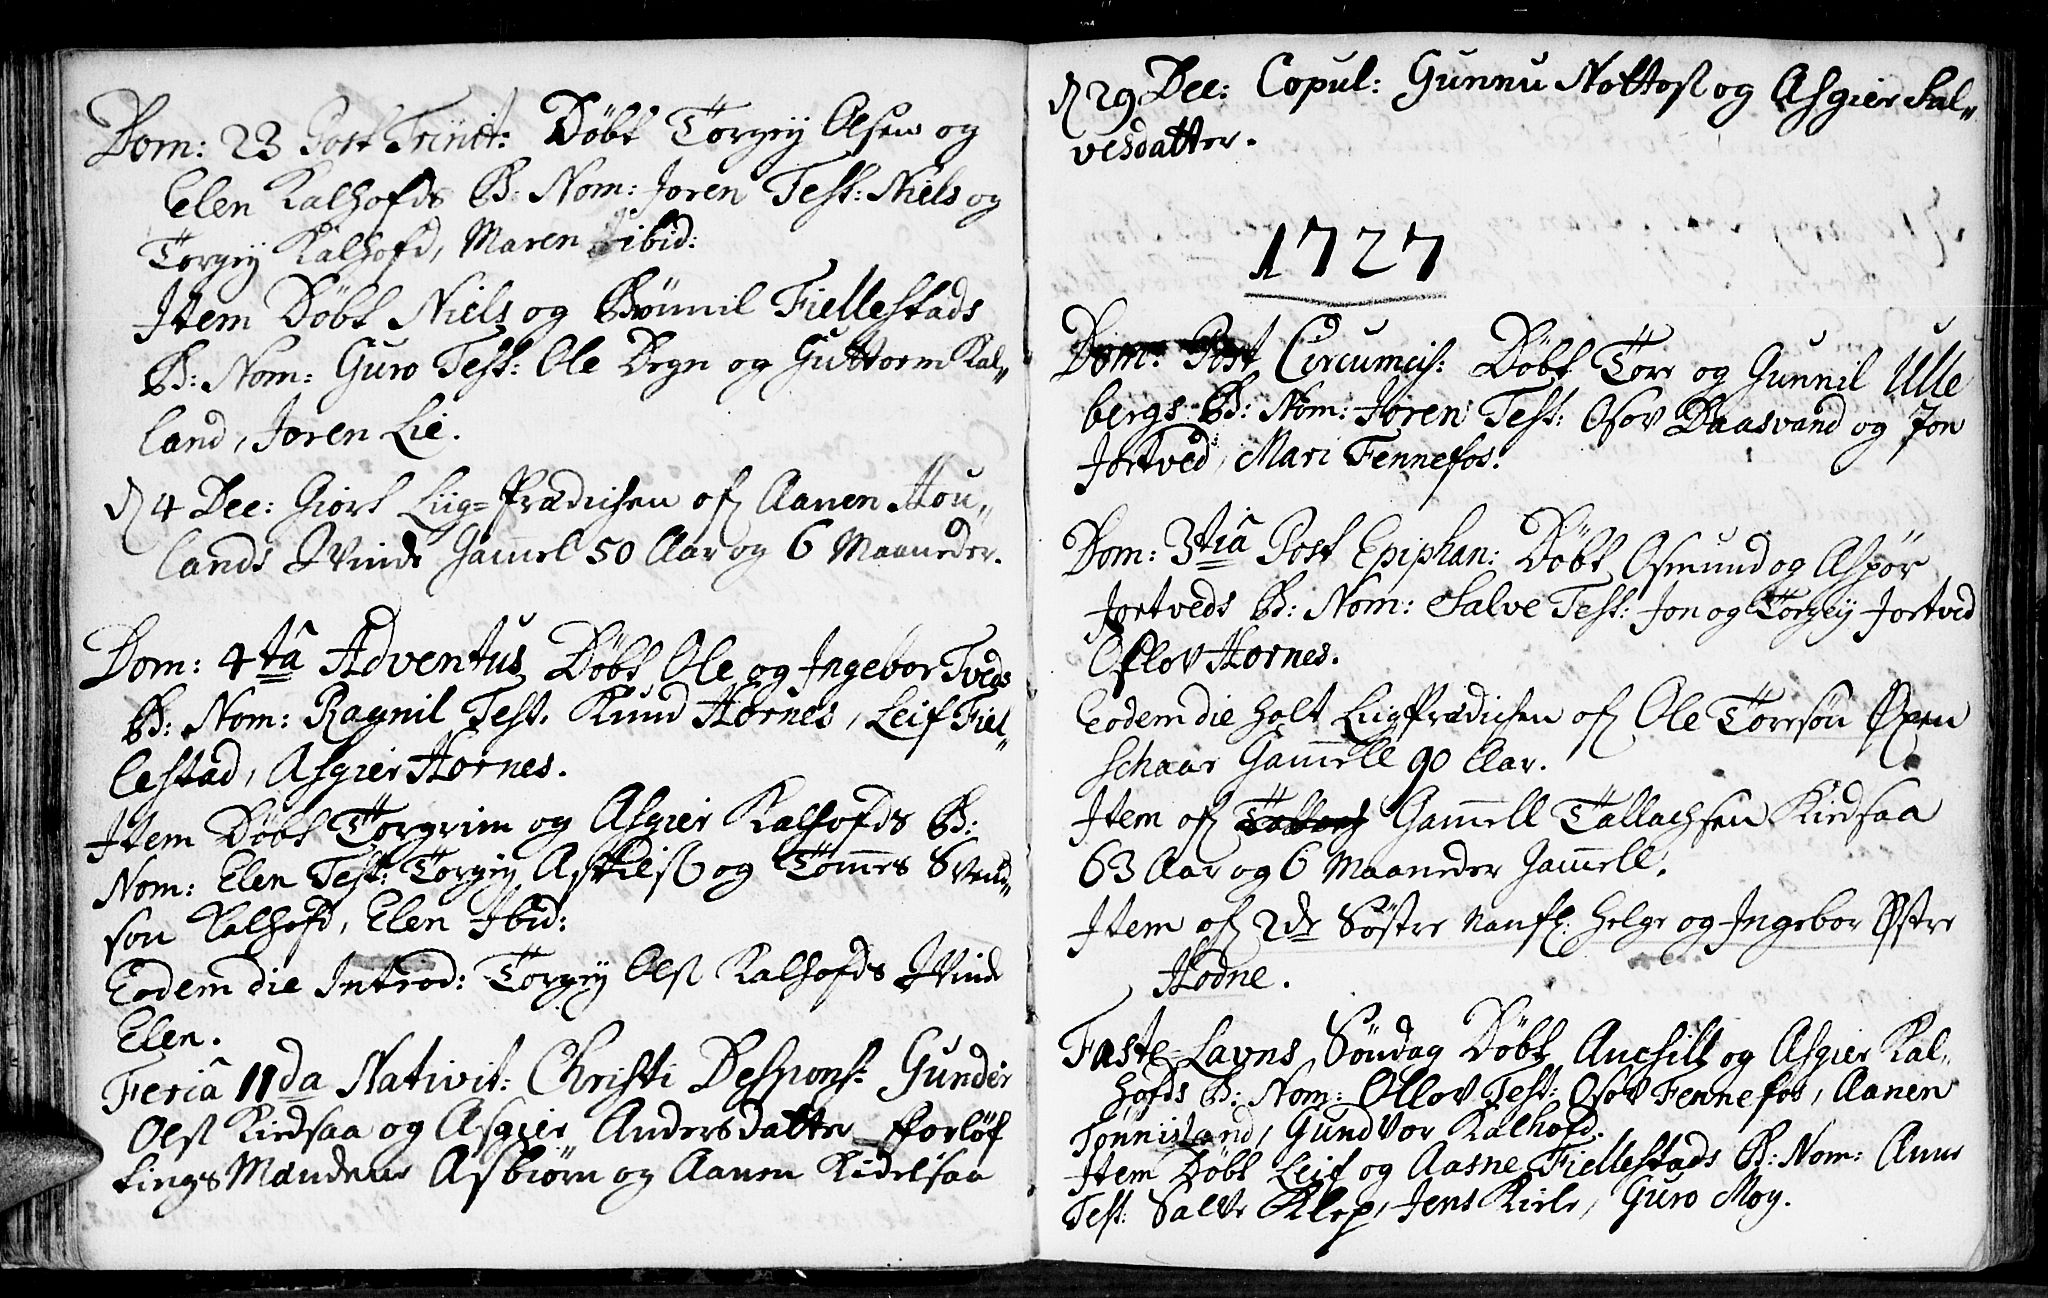 Dom: 23 Post Trinit: Døbt Torgiy Olsens og
Elen Kalhofds B: Nom: Joren Test: Niels og
Torgiy Kalhofd, Maren ibid:
Item Døbt Niels og Brønnil Fiellestads
B: Nom: Guro Test: Ole Degn og Guttorm Kal„
land, Joren Lie.
4 Dec: Giort Liig=Prædichen of Aanen Hou„
lands Qvinde Gam̄el 50 Aar og 6 Maaneder.
Dom: 4ta Adventus Døbt Ole og Ingebor Tveds
B: Nom: Ragnil Test. Knud Hornes, Leif Fiel„
lestad, Asgier Hornes.
Item Døbt Torgrim og Asgier Kalhofds B:
Nom: Elen Test: Torgiy Askilss og Tom̄es Svend„
søn Kalhofd, Elen Ibid:
Eodem die Introd: Torgiy Olss Kalhofds Qvinde
Elen.
Feriâ IIda Nativit: Christi Despons: Gunder
Olss Kiedsaa og Asgier Andersdatter Forløf
tings Mændene Asbiørn og Aanen Kidelsaa
29 Dec: Copul: Gunnu Nottoss og Asgier Sal„
vesdatter.
1727
Dom: Post Circumcis: Døbt Tore og Gunnil Ulle
bergs B: Nom: Joren Test: Osov Daasvand og Jon
Jortved, Mari Fennefos.
Dom: 3tiâ Post Epiphan: Døbt Osmund og Aspør
Jortveds B: Nom: Salve Test: Jon og Torgiy Jortved
Oslov Hornes.
Eodem die Holt Liig Prædichen of Ole Toresøn Øxen
schaar Gam̄ell 90 Aar.
Item of Gam̄ell Tallachsen Kiedsaa
63 Aar og 6 Maaneder Gam̄ell.
Item of 2de Søstre Nanfl: Helge og Ingebor Østre
Hodne.
Faste=Lavns Søndag Døbt Anchill og Asgier Kal„
hofds B: Nom: Ollov Test: Osov Fennefos, Aanen
Tønnisland, Gundvor Kalhofd.
Item Døbt Leif og Aasne Fiellestads B: Nom: Anne
Test: Salve Klep, Jens Kiele, Guro Moy.